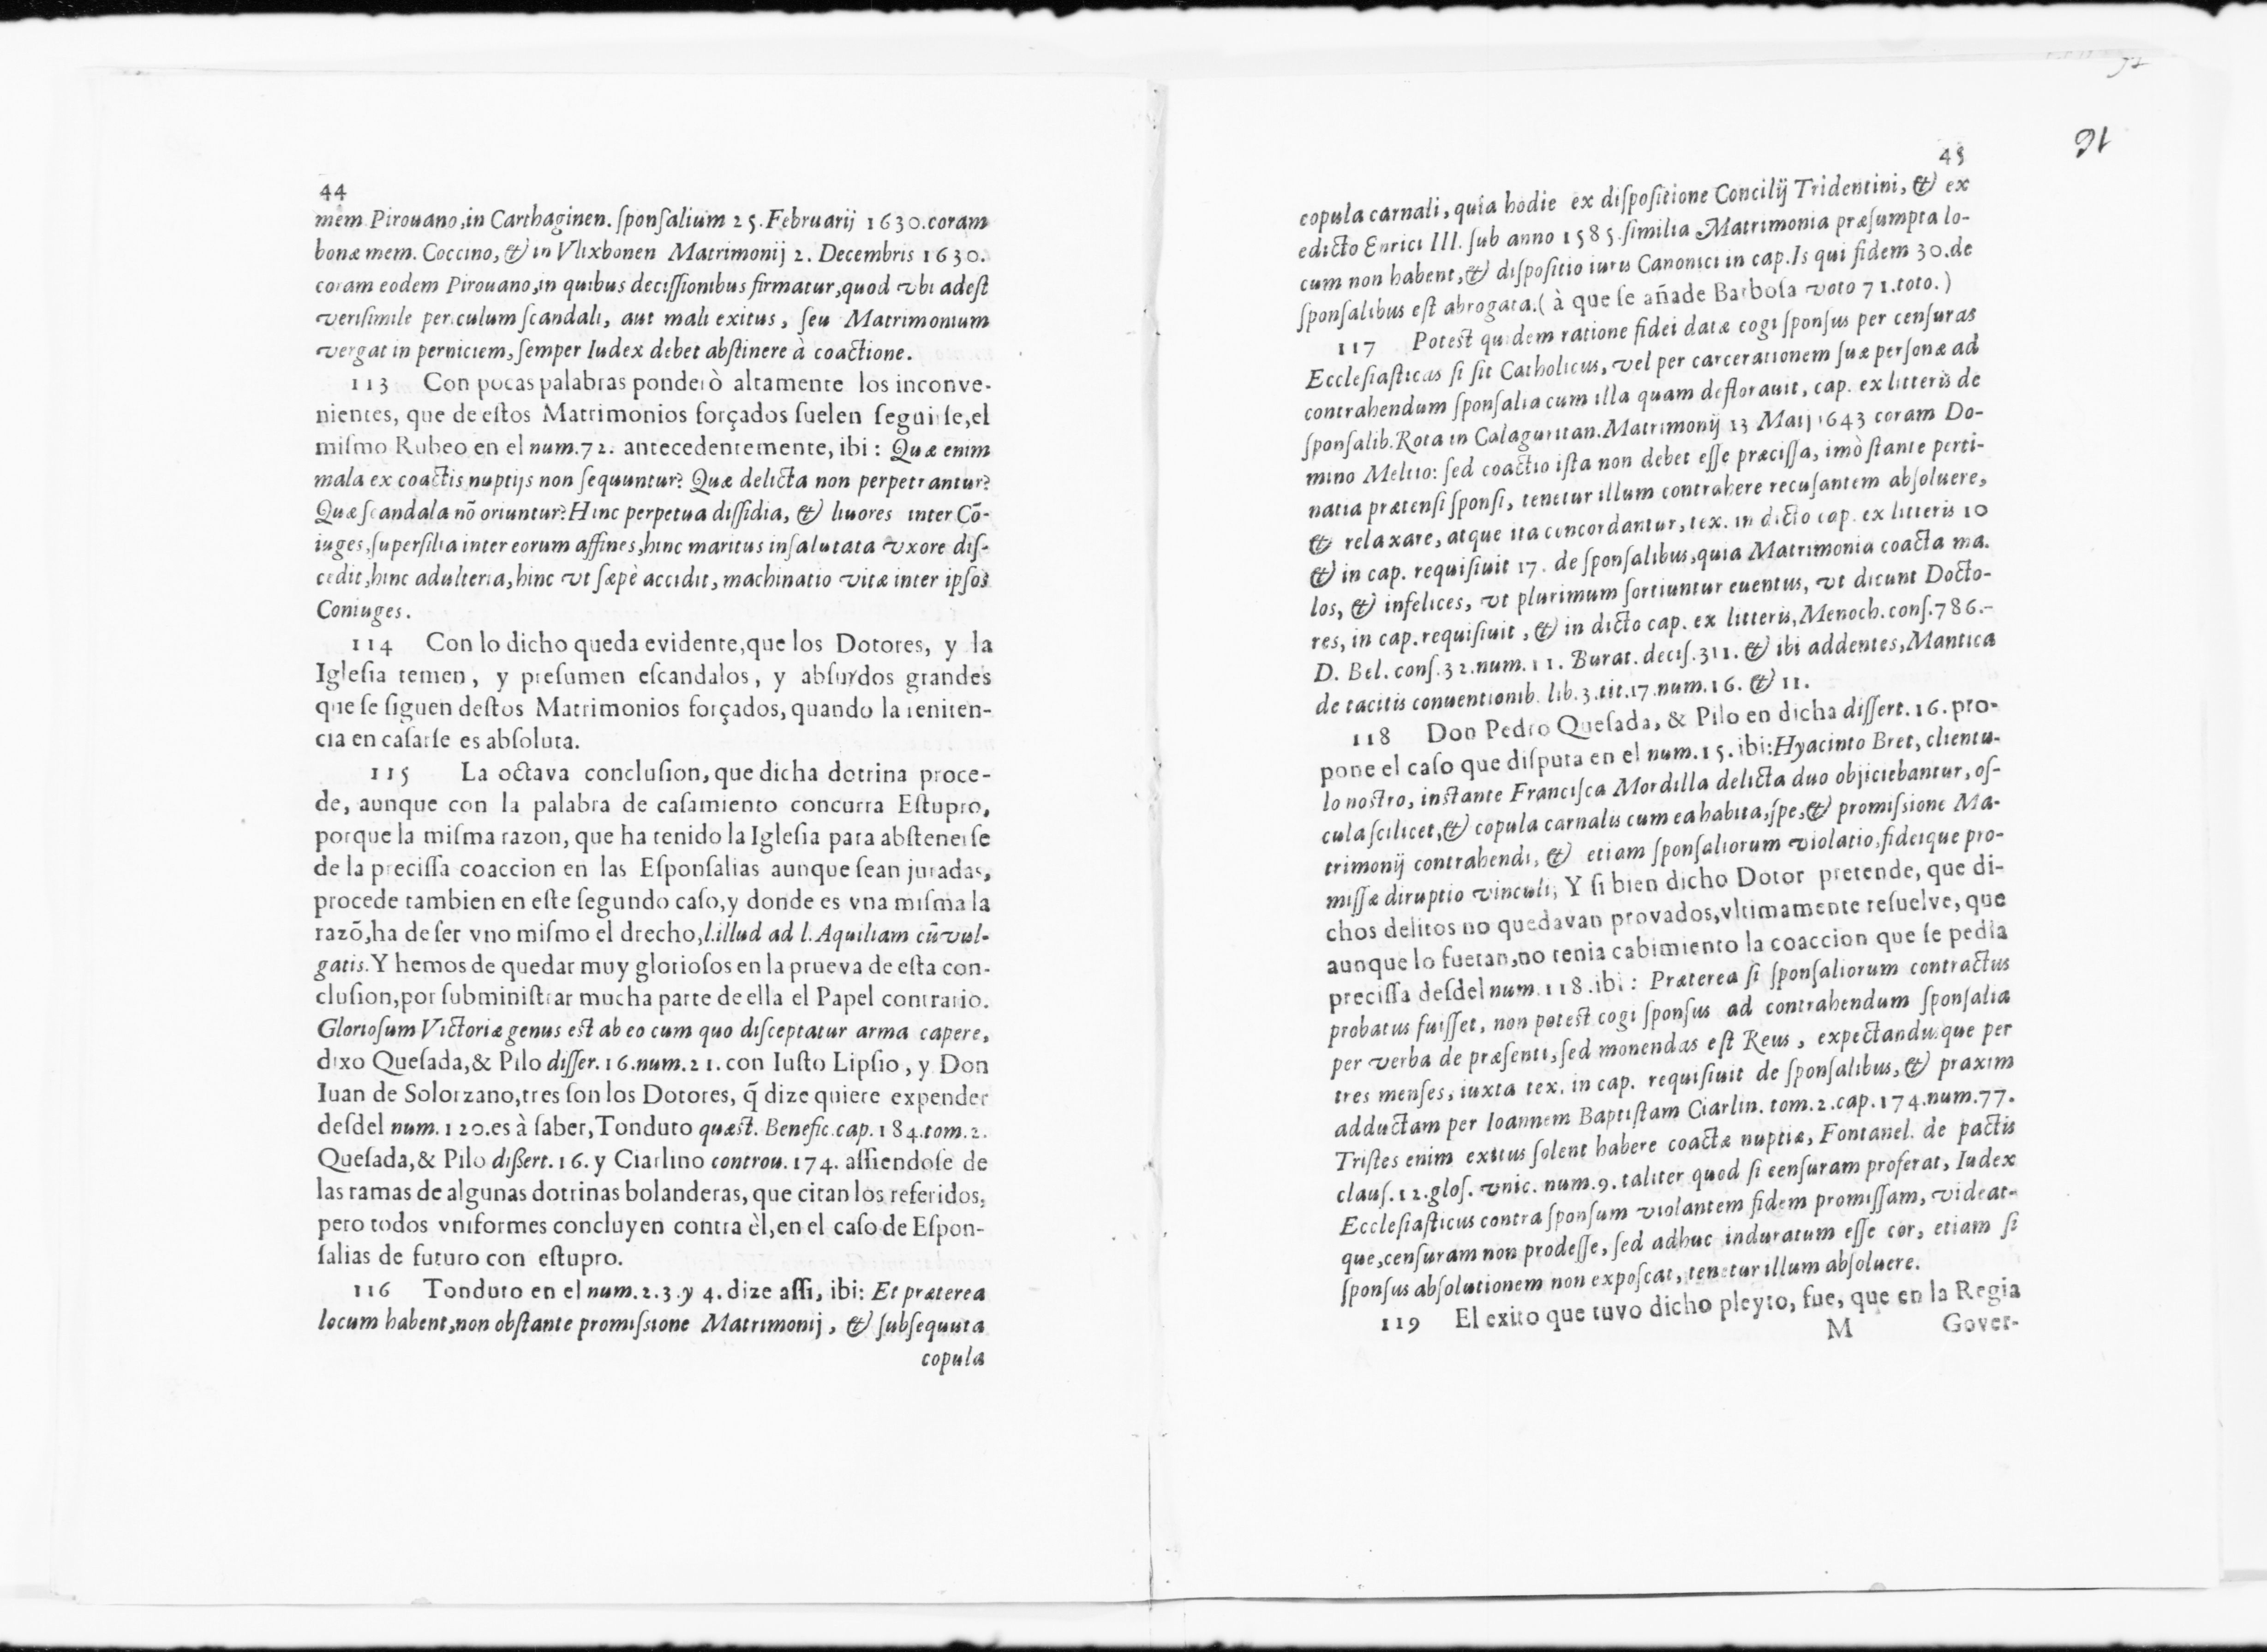 44
mem Pirouano, in Carthaginen. ſponſalium 25. Februarij 1630. coram
bonæ mem. Coccino, & in Vlixbonen Matrimonij 2. Decembris 1630.
coram eodem Pirouano, in quibus deciſſionibus firmatur, quod vbi adeſt
veriſimile periculum ſcandali, aut mali exitus, ſeu Matrimonium
vergat in perniciem, ſemper Iudex debet abſtinere à coactione.
113 Con pocas palabras ponderò altamente los inconve-
nientes, que de eſtos Matrimonios forçados ſuelen ſeguirſe, el
miſmo Rubeo en el num. 72. antecedentemente, ibi: Quæ enim
mala ex coactis nuptijs non ſequuntur? Quæ delicta non perpetrantur?
Quæ ſcandala nõ oriuntur? Hinc perpetua diſſidia, & liuores inter Cõ-
iuges, ſuperſilia inter eorum affines, hinc maritus inſalutata vxore diſ-
cedit, hinc adulteria, hinc vt ſæpè accidit, machinatio vitæ inter ipſos
Coniuges.
114 Con lo dicho queda evidente, que los Dotores, y la
Igleſia temen, y preſumen eſcandalos, y abſurdos grandes
que ſe ſiguen deſtos Matrimonios forçados, quando la reniten-
cia en caſarſe es abſoluta.
115 La octava concluſion, que dicha dotrina proce-
de, aunque con la palabra de caſamiento concurra Eſtupro,
porque la miſma razon, que ha tenido la Igleſia para abſtenerſe
de la preciſſa coaccion en las Eſponſalias aunque ſean juradas,
procede tambien en eſte ſegundo caſo, y donde es vna miſma la
razõ, ha de ſer vno miſmo el drecho, l. illud ad l. Aquiliam cũ vul-
gatis. Y hemos de quedar muy glorioſos en la prueva de eſta con-
cluſion, por ſubminiſtrar mucha parte de ella el Papel contrario.
Glorioſum Victoriæ genus est ab eo cum quo diſceptatur arma capere,
dixo Queſada, & Pilo diſſer. 16. num. 21. con Iuſto Lipſio, y Don
Iuan de Solorzano, tres ſon los Dotores, q̃ dize quiere expender
deſdel num. 120. es à ſaber, Tonduto quæſt. Benefic. cap. 184. tom. 2.
Queſada, & Pilo dißert. 16. y Ciarlino controu. 174. aſſiendoſe de
las ramas de algunas dotrinas bolanderas, que citan los referidos,
pero todos vniformes concluyen contra èl, en el caſo de Eſpon-
ſalias de futuro con eſtupro.
116 Tonduto en el num. 2. 3. y 4. dize aſſi, ibi: Et præterea
locum habent, non obſtante promiſsione Matrimonij, & ſubſequuta
copula
45
91
copula carnali, quia hodie ex diſpoſitione Concilij Tridentini, & ex
edicto Enrici III. ſub anno 1585. ſimilia Matrimonia præſumpta lo-
cum non habent, & diſpoſitio iuris Canonici in cap. Is qui fidem 30. de
ſponſalibus eſt abrogata. ( à que ſe añade Barboſa voto 71. toto. )
117 Potest quidem ratione fidei datæ cogi ſponſus per cenſuras
Eccleſiaſticas ſi ſit Catholicus, vel per carcerationem ſuæ perſonæ ad
contrahendum ſponſalia cum illa quam deflorauit, cap. ex litteris de
ſponſalib. Rota in Calaguritan. Matrimonij 13 Maij 1643 coram Do-
mino Meltio: ſed coactio iſta non debet eſſe præciſſa, imò ſtante perti-
natia prætenſi ſponſi, tenetur illum contrahere recuſantem abſoluere,
& relaxare, atque ita concordantur, tex. in dicto cap. ex litteris 10
& in cap. requiſiuit 17. de ſponſalibus, quia Matrimonia coacta ma.
los, & infelices, vt plurimum ſortiuntur euentus, vt dicunt Docto-
res, in cap. requiſiuit, & in dicto cap. ex litteris, Menoch. conſ. 786.-
D. Bel. conſ. 32. num. 11. Burat. deciſ. 311. & ibi addentes, Mantica
de tacitis conuentionib. lib. 3. tit. 17. num. 16. & 11.
118 Don Pedro Queſada, & Pilo en dicha diſſert. 16. pro-
pone el caſo que diſputa en el num. 15. ibi: Hyacinto Bret, clientu-
lo nostro, instante Franciſca Mordilla delicta duo objiciebantur, oſ-
cula ſcilicet, & copula carnalis cum ea habita, ſpe, & promiſsione Ma-
trimonij contrahendi, & etiam ſponſaliorum violatio, fideique pro-
miſſæ diruptio vinculi, Y ſi bien dicho Dotor pretende, que di-
chos delitos no quedavan provados, vltimamente reſuelve, que
aunque lo fueran, no tenia cabimiento la coaccion que ſe pedia
preciſſa deſdel num. 118. ibi: Præterea ſi ſponſaliorum contractus
probatus fuiſſet, non potest cogi ſponſus ad contrahendum ſponſalia
per verba de præſenti, ſed monendas eſt Reus, expectanduſque per
tres menſes, iuxta tex. in cap. requiſiuit de ſponſalibus, & praxim
adductam per Ioannem Baptiſtam Ciarlin. tom. 2. cap. 174. num. 77.
Triſtes enim exitus ſolent habere coactæ nuptiæ, Fontanel. de pactis
clauſ. 12. gloſ. vnic. num. 9. taliter quod ſi cenſuram proferat, Iudex
Eccleſiaſticus contra ſponſum violantem fidem promiſſam, videat-
que, cenſuram non prodeſſe, ſed adhuc induratum eſſe cor, etiam ſi
ſponſus abſolutionem non expoſcat, tenetur illum abſoluere.
119 El exito que tuvo dicho pleyto, fue, que en la Regia
M Gover-